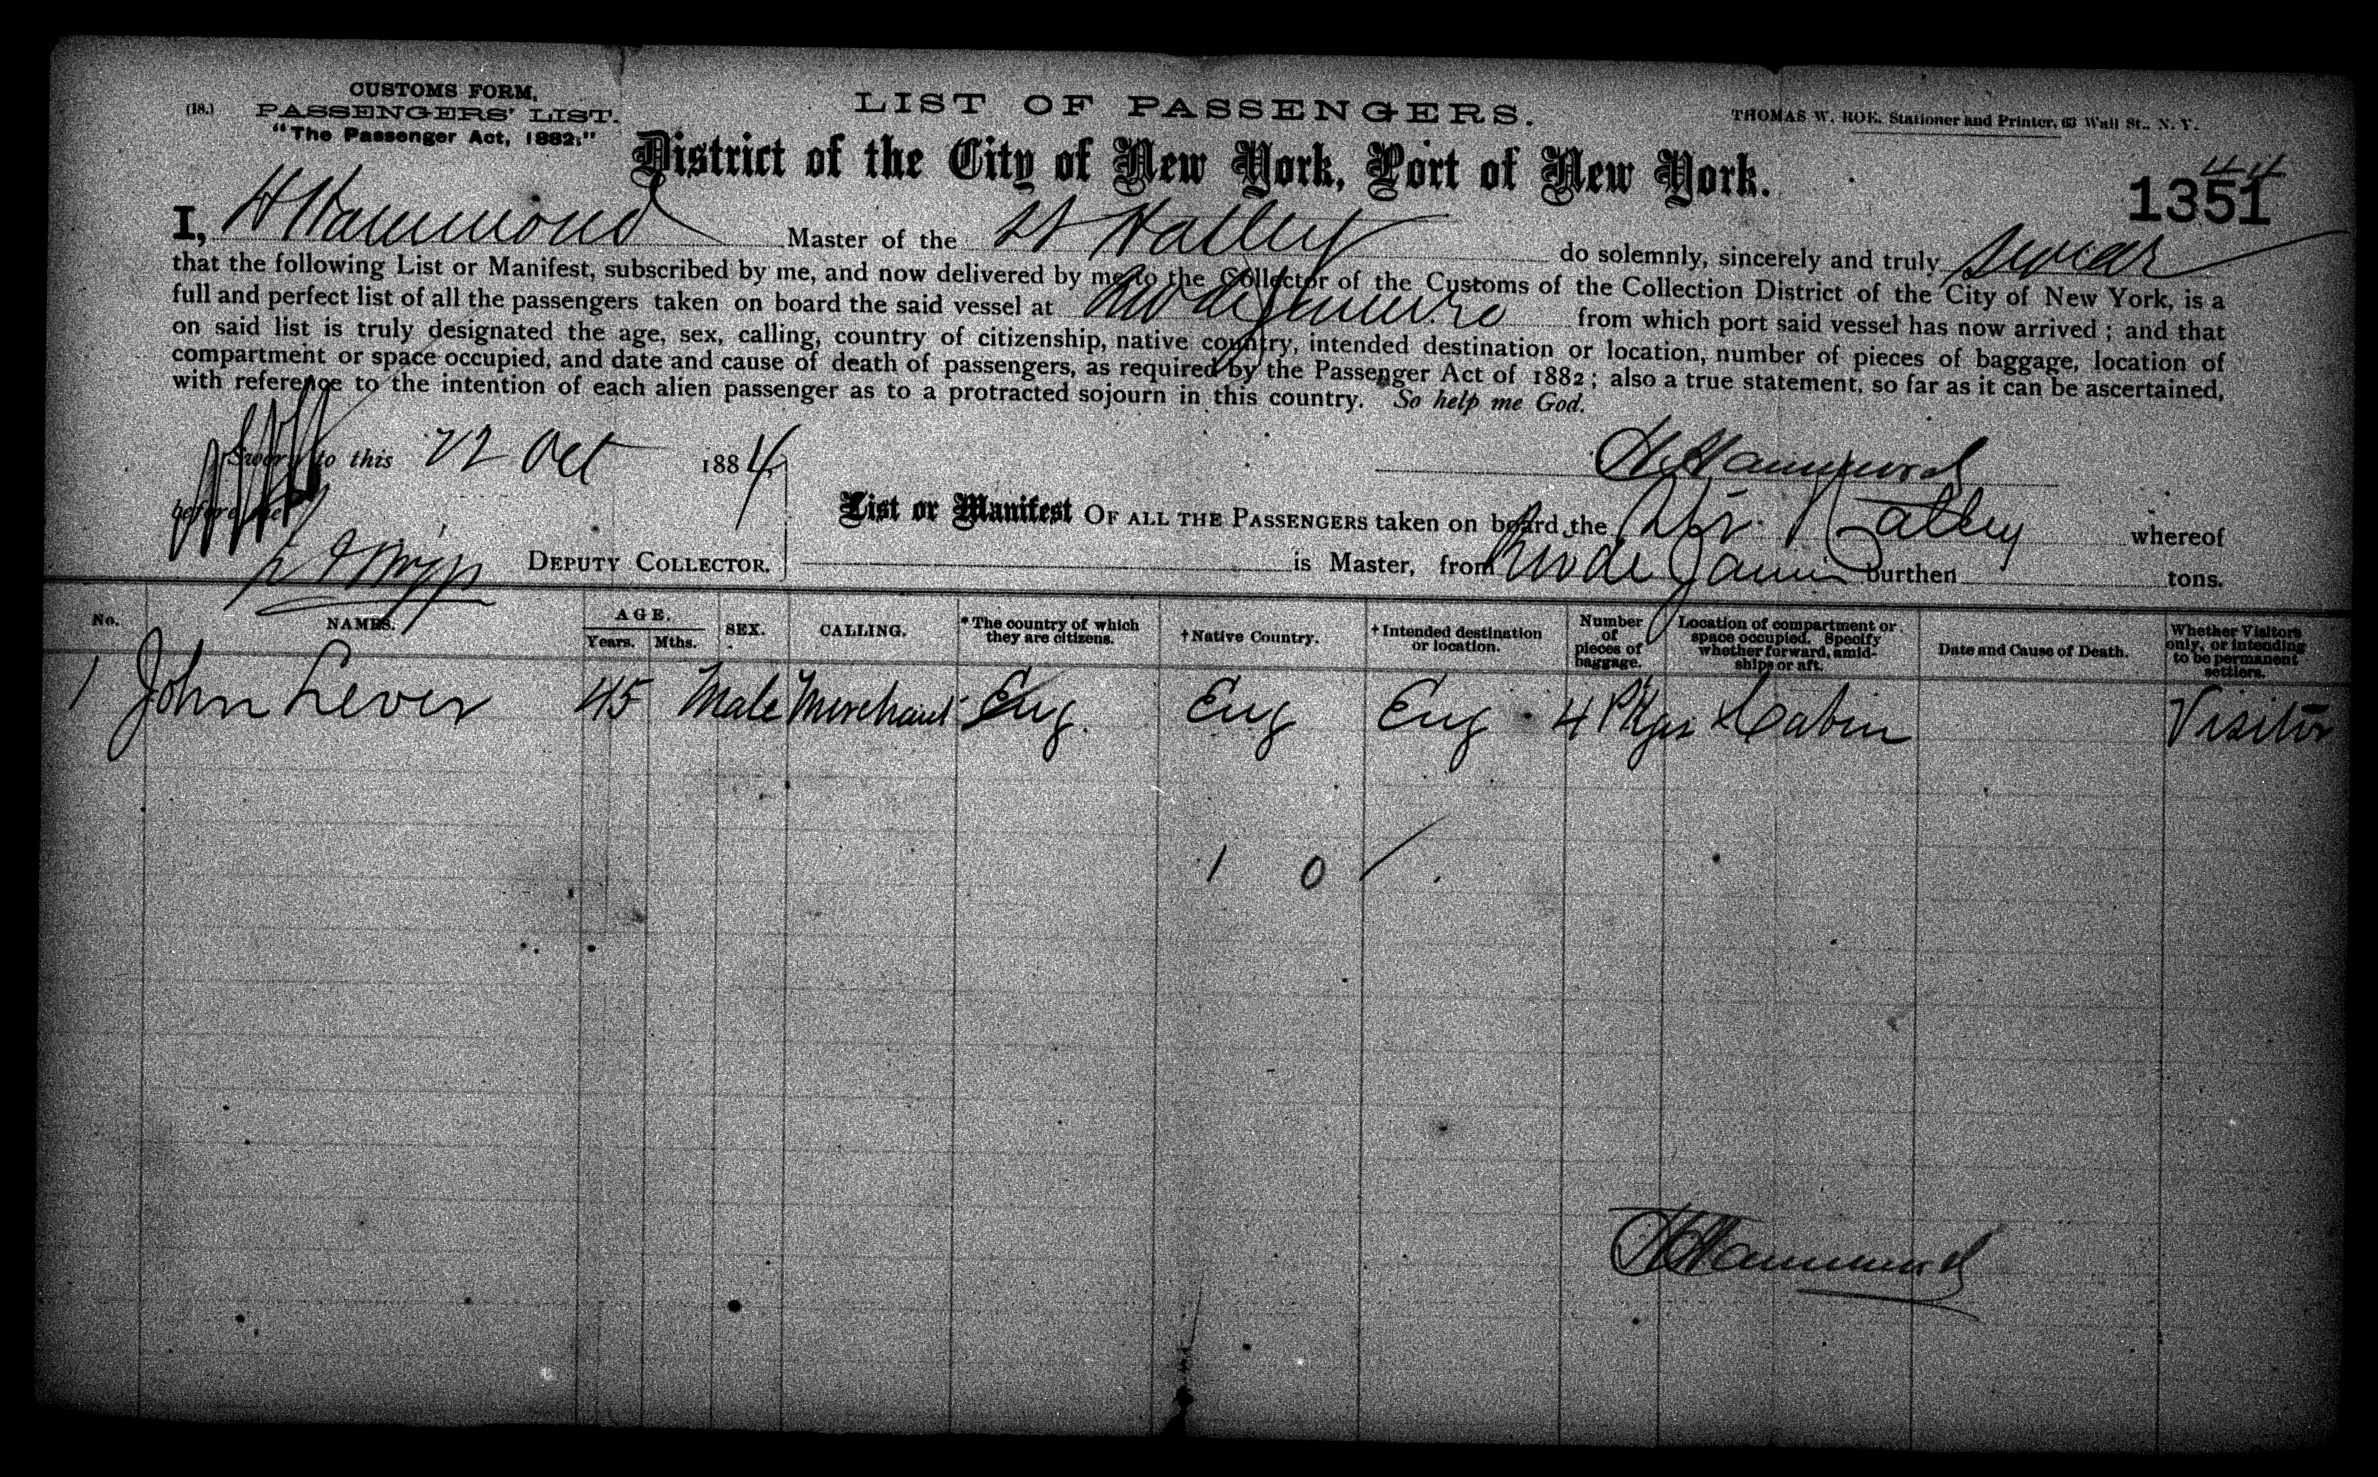 CUSTOMS FORM,
(18.) PASSENGERS' LIST.
"The Passenger Act, 1882."
LIST OF PASSENGERS.
THOMAS W. ROE, Stationer and Printer, 63 Wall St., N. Y.
District of the City of New York, Port of New York.
44
1351
I, H Hammond Master of the St Halley do solemnly, sincerely and truly swear
that the following List or Manifest, subscribed by me, and now delivered by me to the Collector of the Customs of the Collection District of the City of New York, is a
full and perfect list of all the passengers taken on board the said vessel at Rio de Janeiro from which port said vessel has now arrived; and that
on said list is truly designated the age, sex, calling, country of citizenship, native country, intended destination or location, number of pieces of baggage, location of
compartment or space occupied, and date and cause of death of passengers, as required by the Passenger Act of 1882; also a true statement, so far as it can be ascertained,
with reference to the intention of each alien passenger as to a protracted sojourn in this country. So help me God.
Sworn to this 22 Oct 1884
H Hammond
before me
DEPUTY COLLECTOR.
List or Manifest OF ALL THE PASSENGERS taken on board the Str Halley whereof
is Master, from Rio de Janeiro burthen tons.
No. NAMES. AGE. Years. Mths. SEX. CALLING. *The country of which they are citizens. †Native Country. †Intended destination or location. Number of pieces of baggage. Location of compartment or space occupied. Specify whether forward, amidships or aft. Date and Cause of Death. Whether Visitors only, or intending to be permanent settlers.
1 John Lever 45 Male Merchant Eng. Eng Eng 4 Pkgs Cabin Visitor
1 0 /
H Hammond